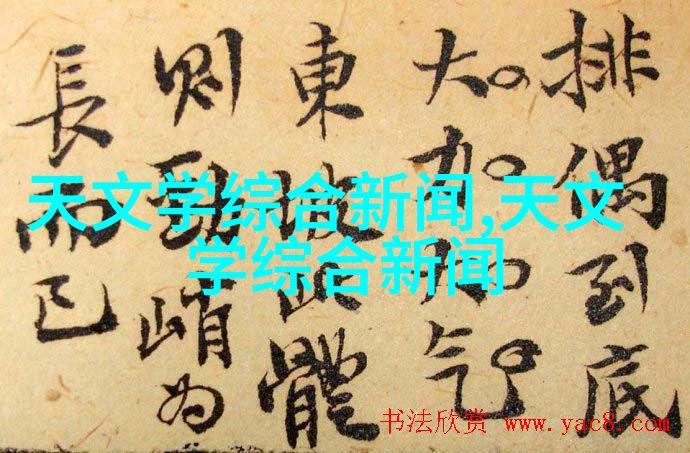 排偶到底
大 气
東坡此體
則勁峭為
長而已
天文学综合新闻,天文
学综合新闻
书法欣赏 www.yac8.com